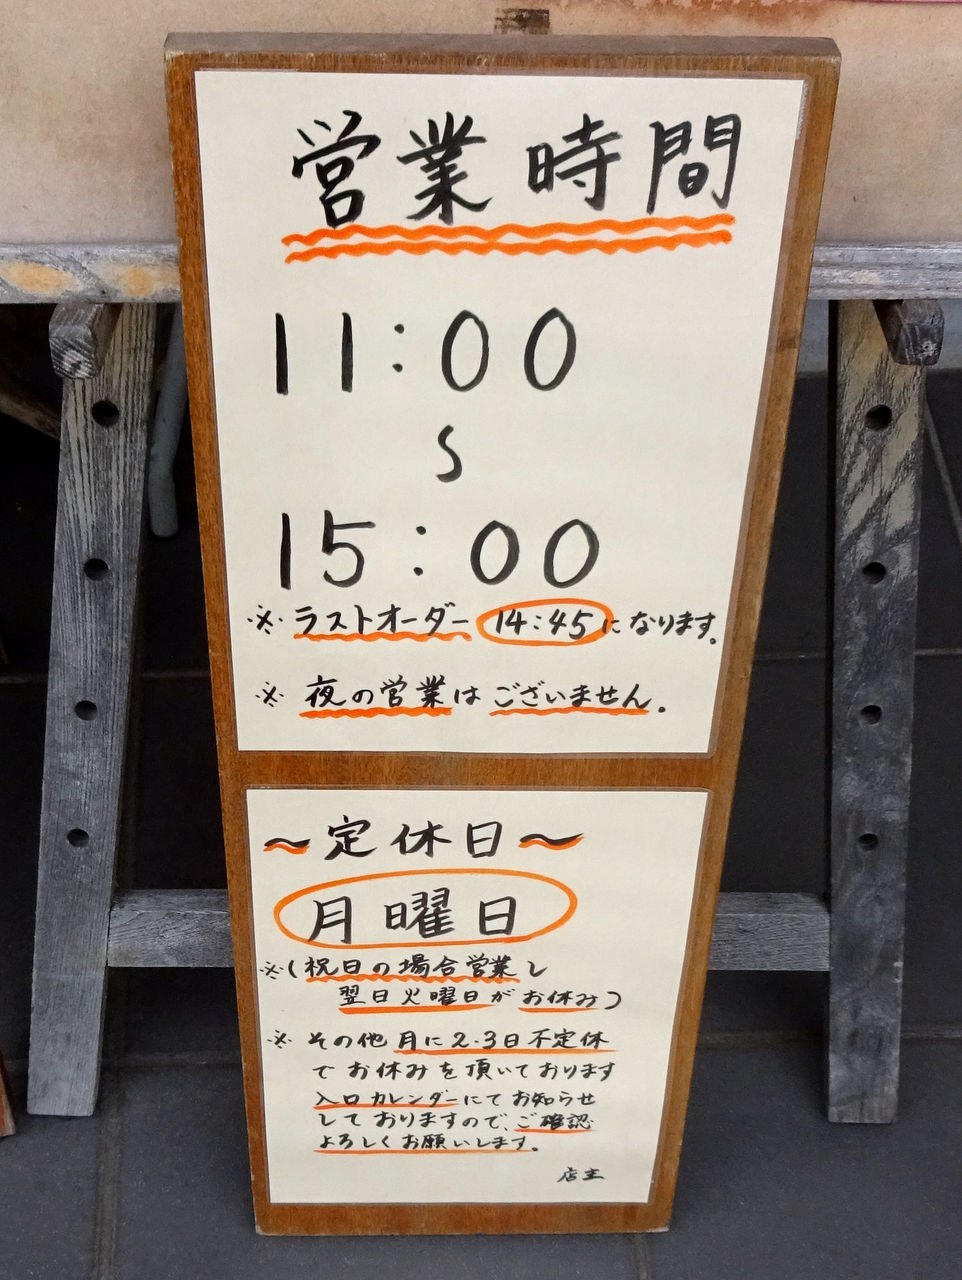 営業時間
11:00
〜
15:00
※ ラストオーダー 14:45 になります。
※ 夜の営業は ございません。
〜定休日〜
月曜日
※(祝日の場合営業し
翌日火曜日がお休み)
※ その他 月に2・3日不定休
でお休みを頂いております
入口カレンダーにてお知らせ
しておりますので、ご確認
よろしくお願いします。
店主